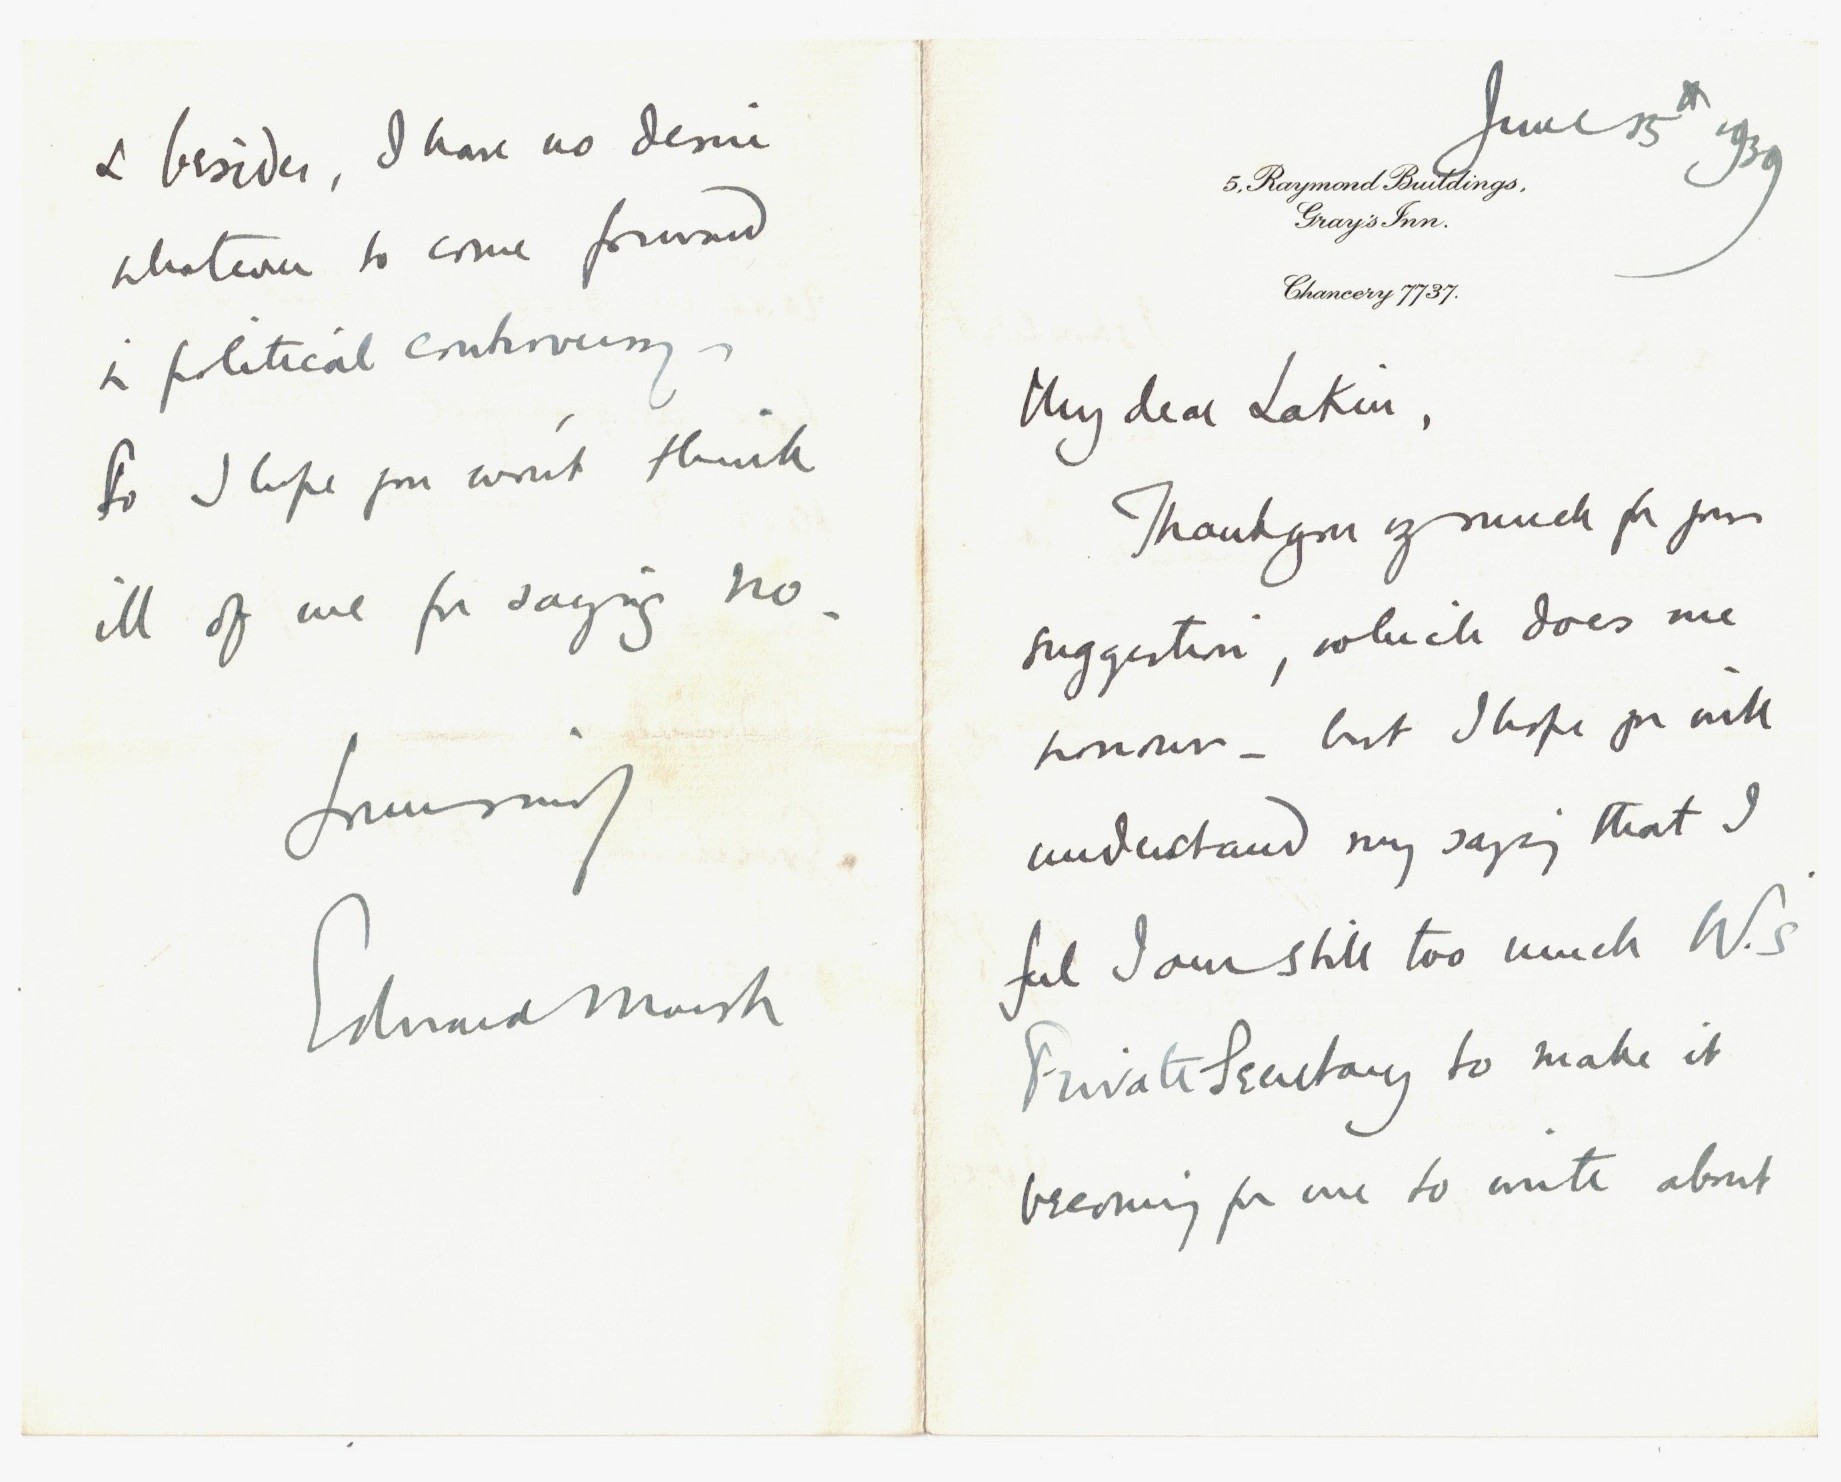 June 15th 1939
5, Raymond Buildings,
Gray's Inn.
Chancery 7737.
My dear Lakin,
Thank you so much for your
suggestion, which does me
honour – but I hope you will
understand my saying that I
feel I am still too much W.'s
Private Secretary to make it
becoming for me to write about
& besides, I have no desire
whatever to come forward
in political controversy –
So I hope you won't think
ill of me for saying no –
Yours sincerely
Edward Marsh